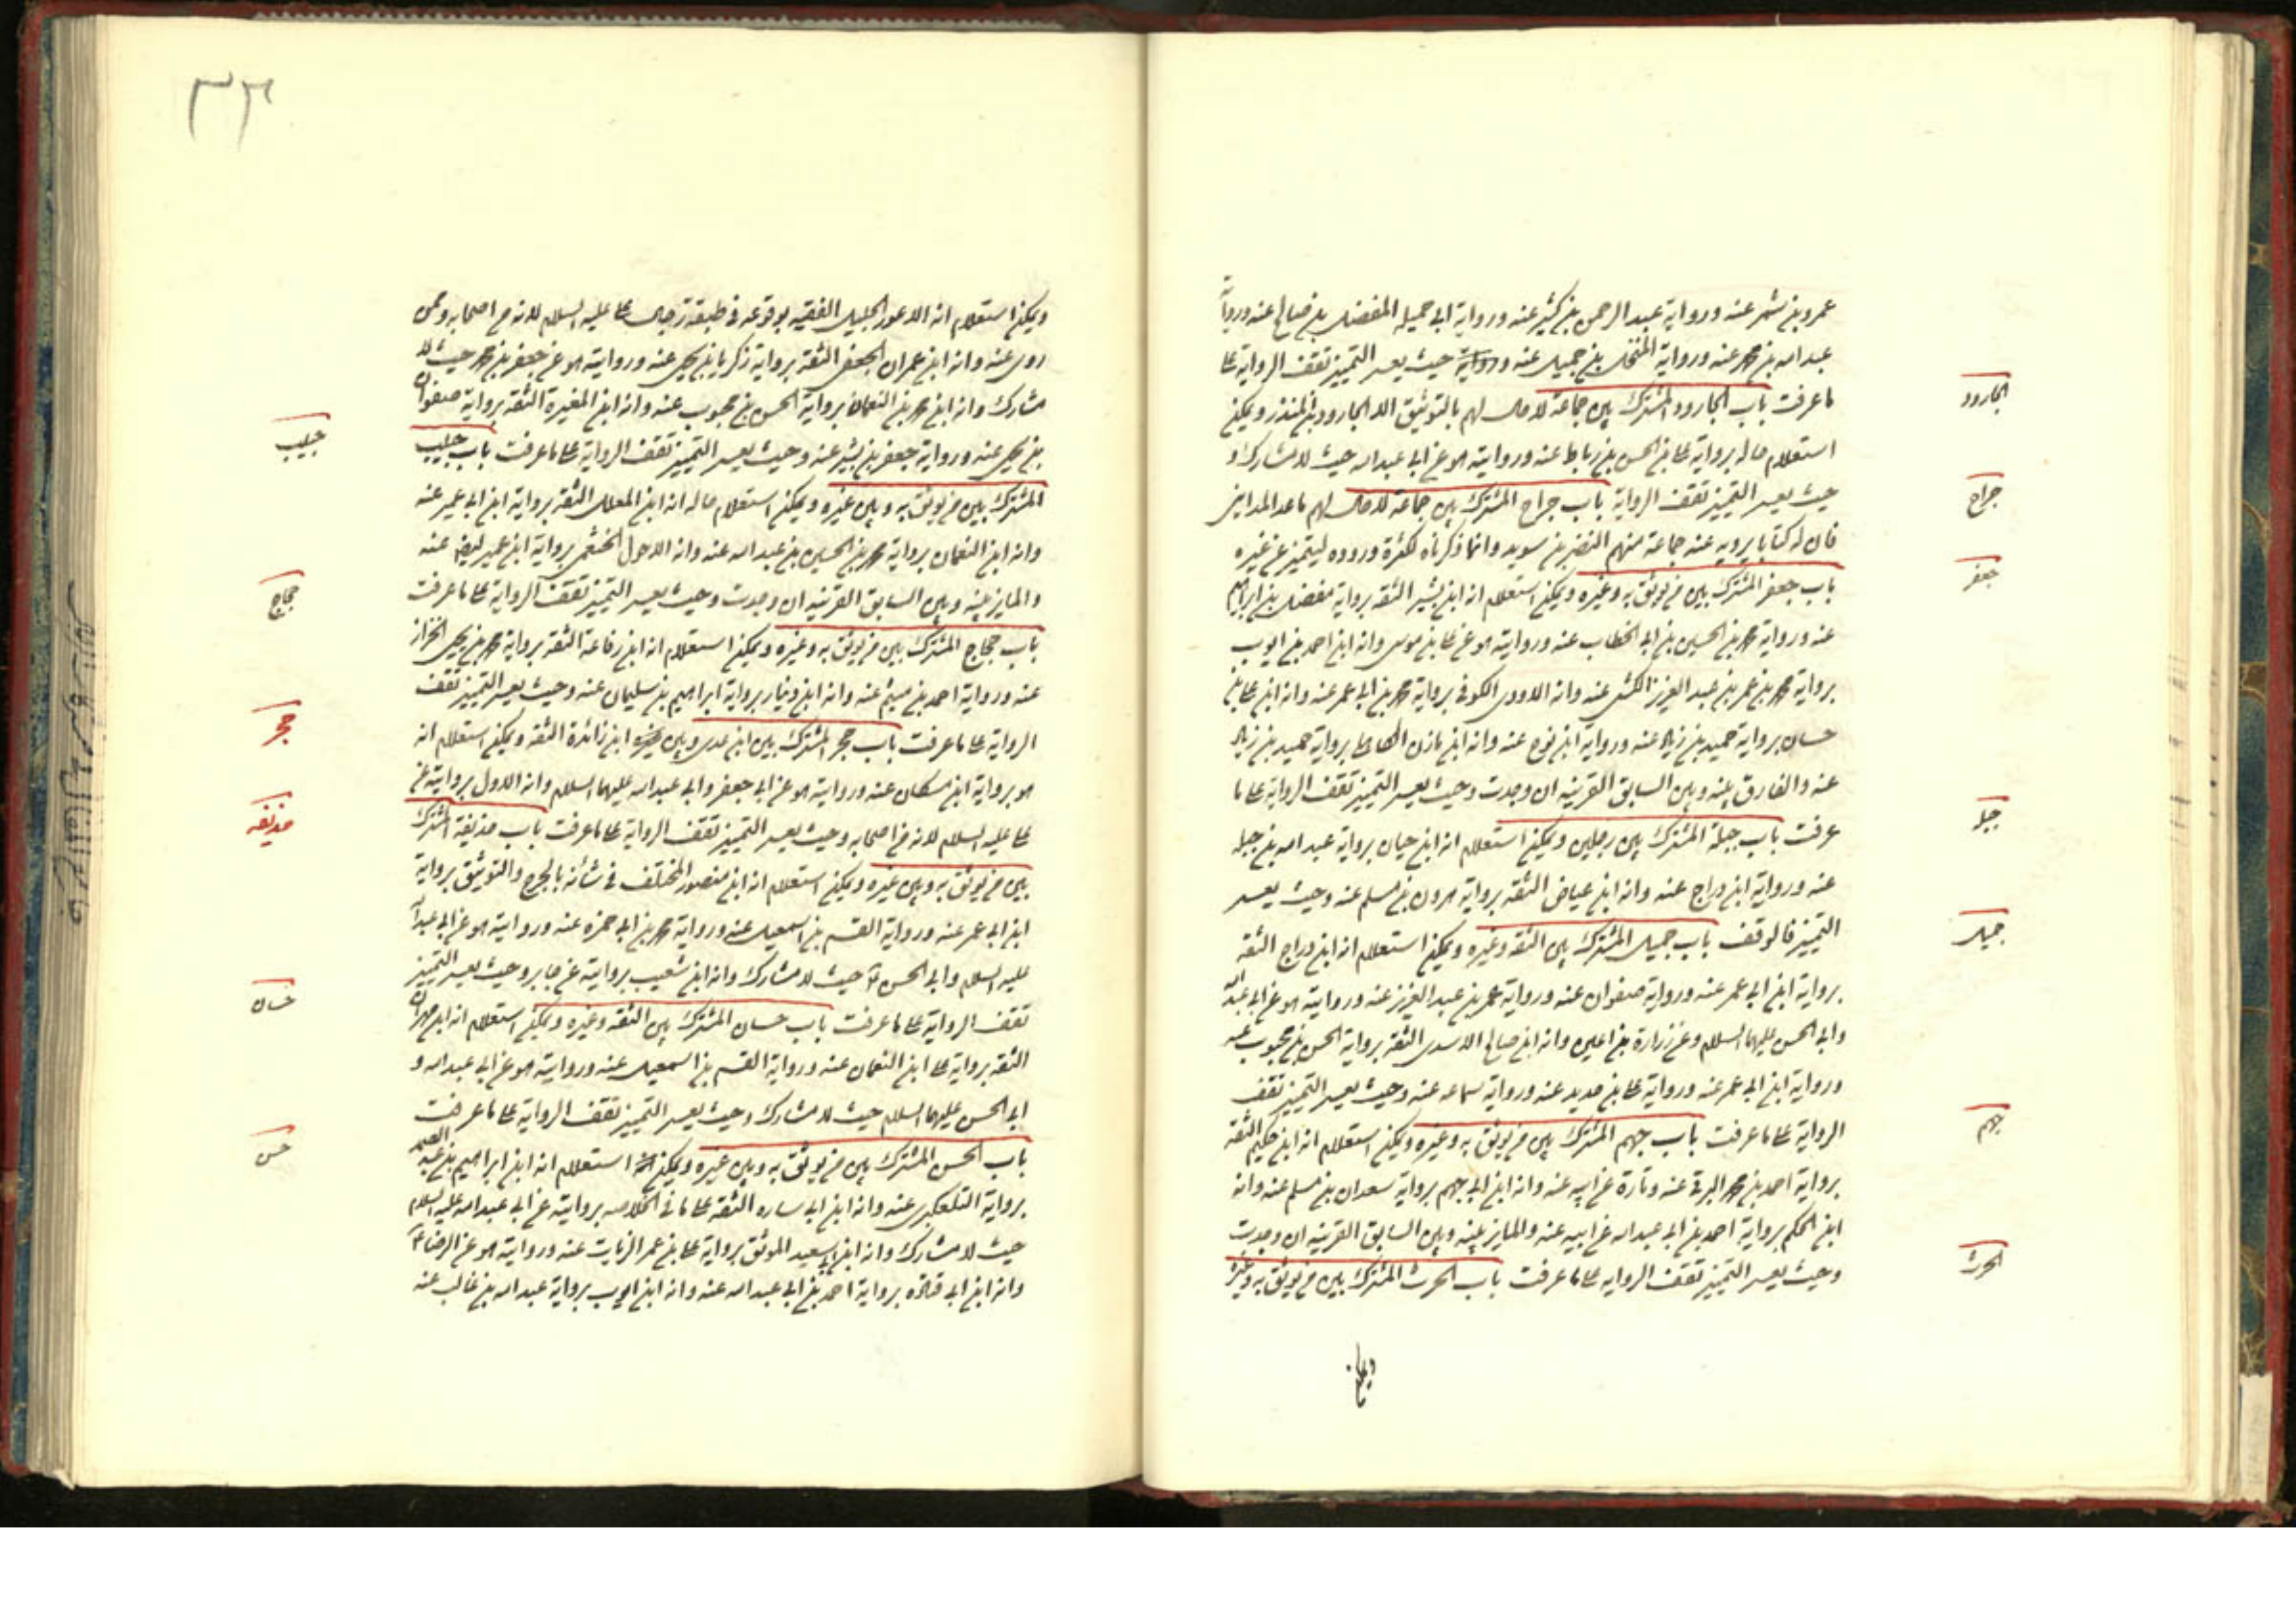 عمرو بن شمر عنه ورواية عبد الرحمن بن كثير عنه ورواية ابي جميله المفضل بن صالح عنه ورواية
عبد الله بن محمد عنه ورواية المنخل بن جميل عنه وحيث يعسر التميز تقف الرواية على
ما عرفت باب الجارود المشترك بين جماعة لا حال لهم بالتوثيق الا الجارود بن المنذر ويمكن
استعلام حاله برواية على بن الحسن بن رباط عنه وروايته هو عن ابي عبد الله حيث لا مشارك و
حيث يعسر التميز تقف الرواية باب جراح المشترك بين جماعة لا حال لهم ما عدا المدايني
فان له كتابا يرويه عنه جماعة منهم النضر بن سويد وانما ذكرناه لكثرة وروده ليتميز عن غيره
باب جعفر المشترك بين من يوثق به وغيره ويمكن استعلام انه ابن بشير الثقه برواية مفضل بن ابراهيم
عنه ورواية محمد بن الحسين بن ابي الخطاب عنه وروايته هو عن على بن موسى وانه ابن احمد بن ايوب
برواية محمد بن عمر بن عبد العزيز الكشى عنه وانه الاودى الكوفى برواية محمد بن ابي عمر عنه وانه ابن على بن
حسان برواية حميد بن زياد عنه ورواية ابن نوح عنه وانه ابن مازن برواية حميد بن زياد
عنه والفارق بينه وبين السابق القرينه ان وجدت وحيث يعسر التميز تقف الرواية على ما
عرفت باب جبلة المشترك بين رجلين ويمكن استعلام انه ابن حيان برواية عبد الله بن جبله
عنه ورواية ابن دراج عنه وانه ابن عياض الثقه برواية هرون بن مسلم عنه وحيث يعسر
التميز فالوقف باب جميل المشترك بين الثقه وغيره ويمكن استعلام انه ابن دراج الثقه
برواية ابن ابي عمر عنه ورواية صفوان عنه ورواية عمر بن عبد العزيز عنه وروايته هو عن ابي عبد الله
وابي الحسن عليهما السلام وعن زرارة بن اعين وانه ابن صالح الاسدى الثقه برواية الحسن بن محبوب عنه
ورواية ابن ابي عمر عنه ورواية على بن حديد عنه ورواية سماعه عنه وحيث يعسر التميز تقف
الرواية على ما عرفت باب جهم المشترك بين من يوثق به وغيره ويمكن استعلام انه ابن حكيم الثقه
برواية احمد بن محمد البرقى عنه وتارة عن ابيه عنه وانه ابن ابي جهم برواية سعدان بن مسلم عنه وانه
ابن الحكم برواية احمد بن ابي عبد الله عن ابيه عنه والمايز بينه وبين السابق القرينه ان وجدت
وحيث يعسر التميز تقف الروايه على ما عرفت باب الحرث المشترك بين من يوثق به وغيره
ويمكن
الجارود
جراح
جعفر
جبله
جميل
جهم
الحرث
٣٣
ويمكن استعلام انه الاعور الجليل الفقيه بوقوعه فى طبقة رجال على عليه السلام لانه من اصحابه وممن
روى عنه وانه ابن عمران الجعفى الثقه برواية زكريا بن يحيى عنه وروايته هو عن جعفر بن محمد حيث لا
مشارك وانه ابن محمد بن النعمان برواية الحسن بن محبوب عنه وانه ابن المغيرة الثقه برواية صفوان
بن يحيى عنه ورواية جعفر بن بشير عنه وحيث يعسر التميز تقف الرواية على ما عرفت باب حبيب
المشترك بين من يوثق به وبين غيره ويمكن استعلام حاله انه ابن المعلل الثقه برواية ابن ابي عمير عنه
وانه ابن النعمان برواية محمد بن الحسين بن عبد الله عنه وانه الاحول الخثعمى برواية ابن عمير ايضا عنه
والمايز بينه وبين السابق القرينه ان وجدت وحيث يعسر التميز تقف الرواية على ما عرفت
باب حجاج المشترك بين من يوثق به وغيره ويمكن استعلام انه ابن رفاعه الثقه برواية محمد بن يحيى الخزاز
عنه ورواية احمد بن ميثم عنه وانه ابن دينار برواية ابراهيم بن سليمان عنه وحيث يعسر التميز تقف
الرواية على ما عرفت باب حجر المشترك بين ابن عدى وبين ابن زائدة الثقه ويمكن استعلام انه
هو برواية ابن مسكان عنه وروايته هو عن ابي جعفر وابي عبد الله عليهما السلام وانه الاول بروايته عن
على عليه السلام لانه من اصحابه وحيث يعسر التميز تقف الرواية على ما عرفت باب حذيفة المشترك
بين من يوثق به وبين غيره ويمكن استعلام انه ابن منصور المختلف فى شأنه بالجرح والتوثيق برواية
ابن ابي عمر عنه ورواية القسم بن اسمعيل عنه ورواية محمد بن ابي حمزه عنه وروايته هو عن ابي عبد الله
عليه السلام وابي الحسن حيث لا مشارك وانه ابن شعيب بروايته عن جابر وحيث يعسر التميز
تقف الرواية على ما عرفت باب حسان المشترك بين الثقه وغيره ويمكن استعلام انه ابن مهران
الثقه برواية على ابن النعمان عنه ورواية القسم بن اسمعيل عنه وروايته هو عن ابي عبد الله و
ابي الحسن عليهما السلام حيث لا مشارك وحيث يعسر التميز تقف الرواية على ما عرفت
باب الحسن المشترك بين من يوثق به وبين غيره ويمكن استعلام انه ابن ابراهيم بن عبد الصمد
برواية التلعكبرى عنه وانه ابن ابي ساره الثقه على ما فى الخلاصه بروايته عن ابي عبد الله عليه السلام
حيث لا مشارك وانه ابن ابي سعيد الموثق برواية على بن عمر الزيات عنه وروايته هو عن الرضا
وانه ابن ابي قتاده برواية احمد بن ابي عبد الله عنه وانه ابن ايوب برواية عبد الله بن غالب عنه
حبيب
حجاج
حجر
حذيفه
حسان
حسن